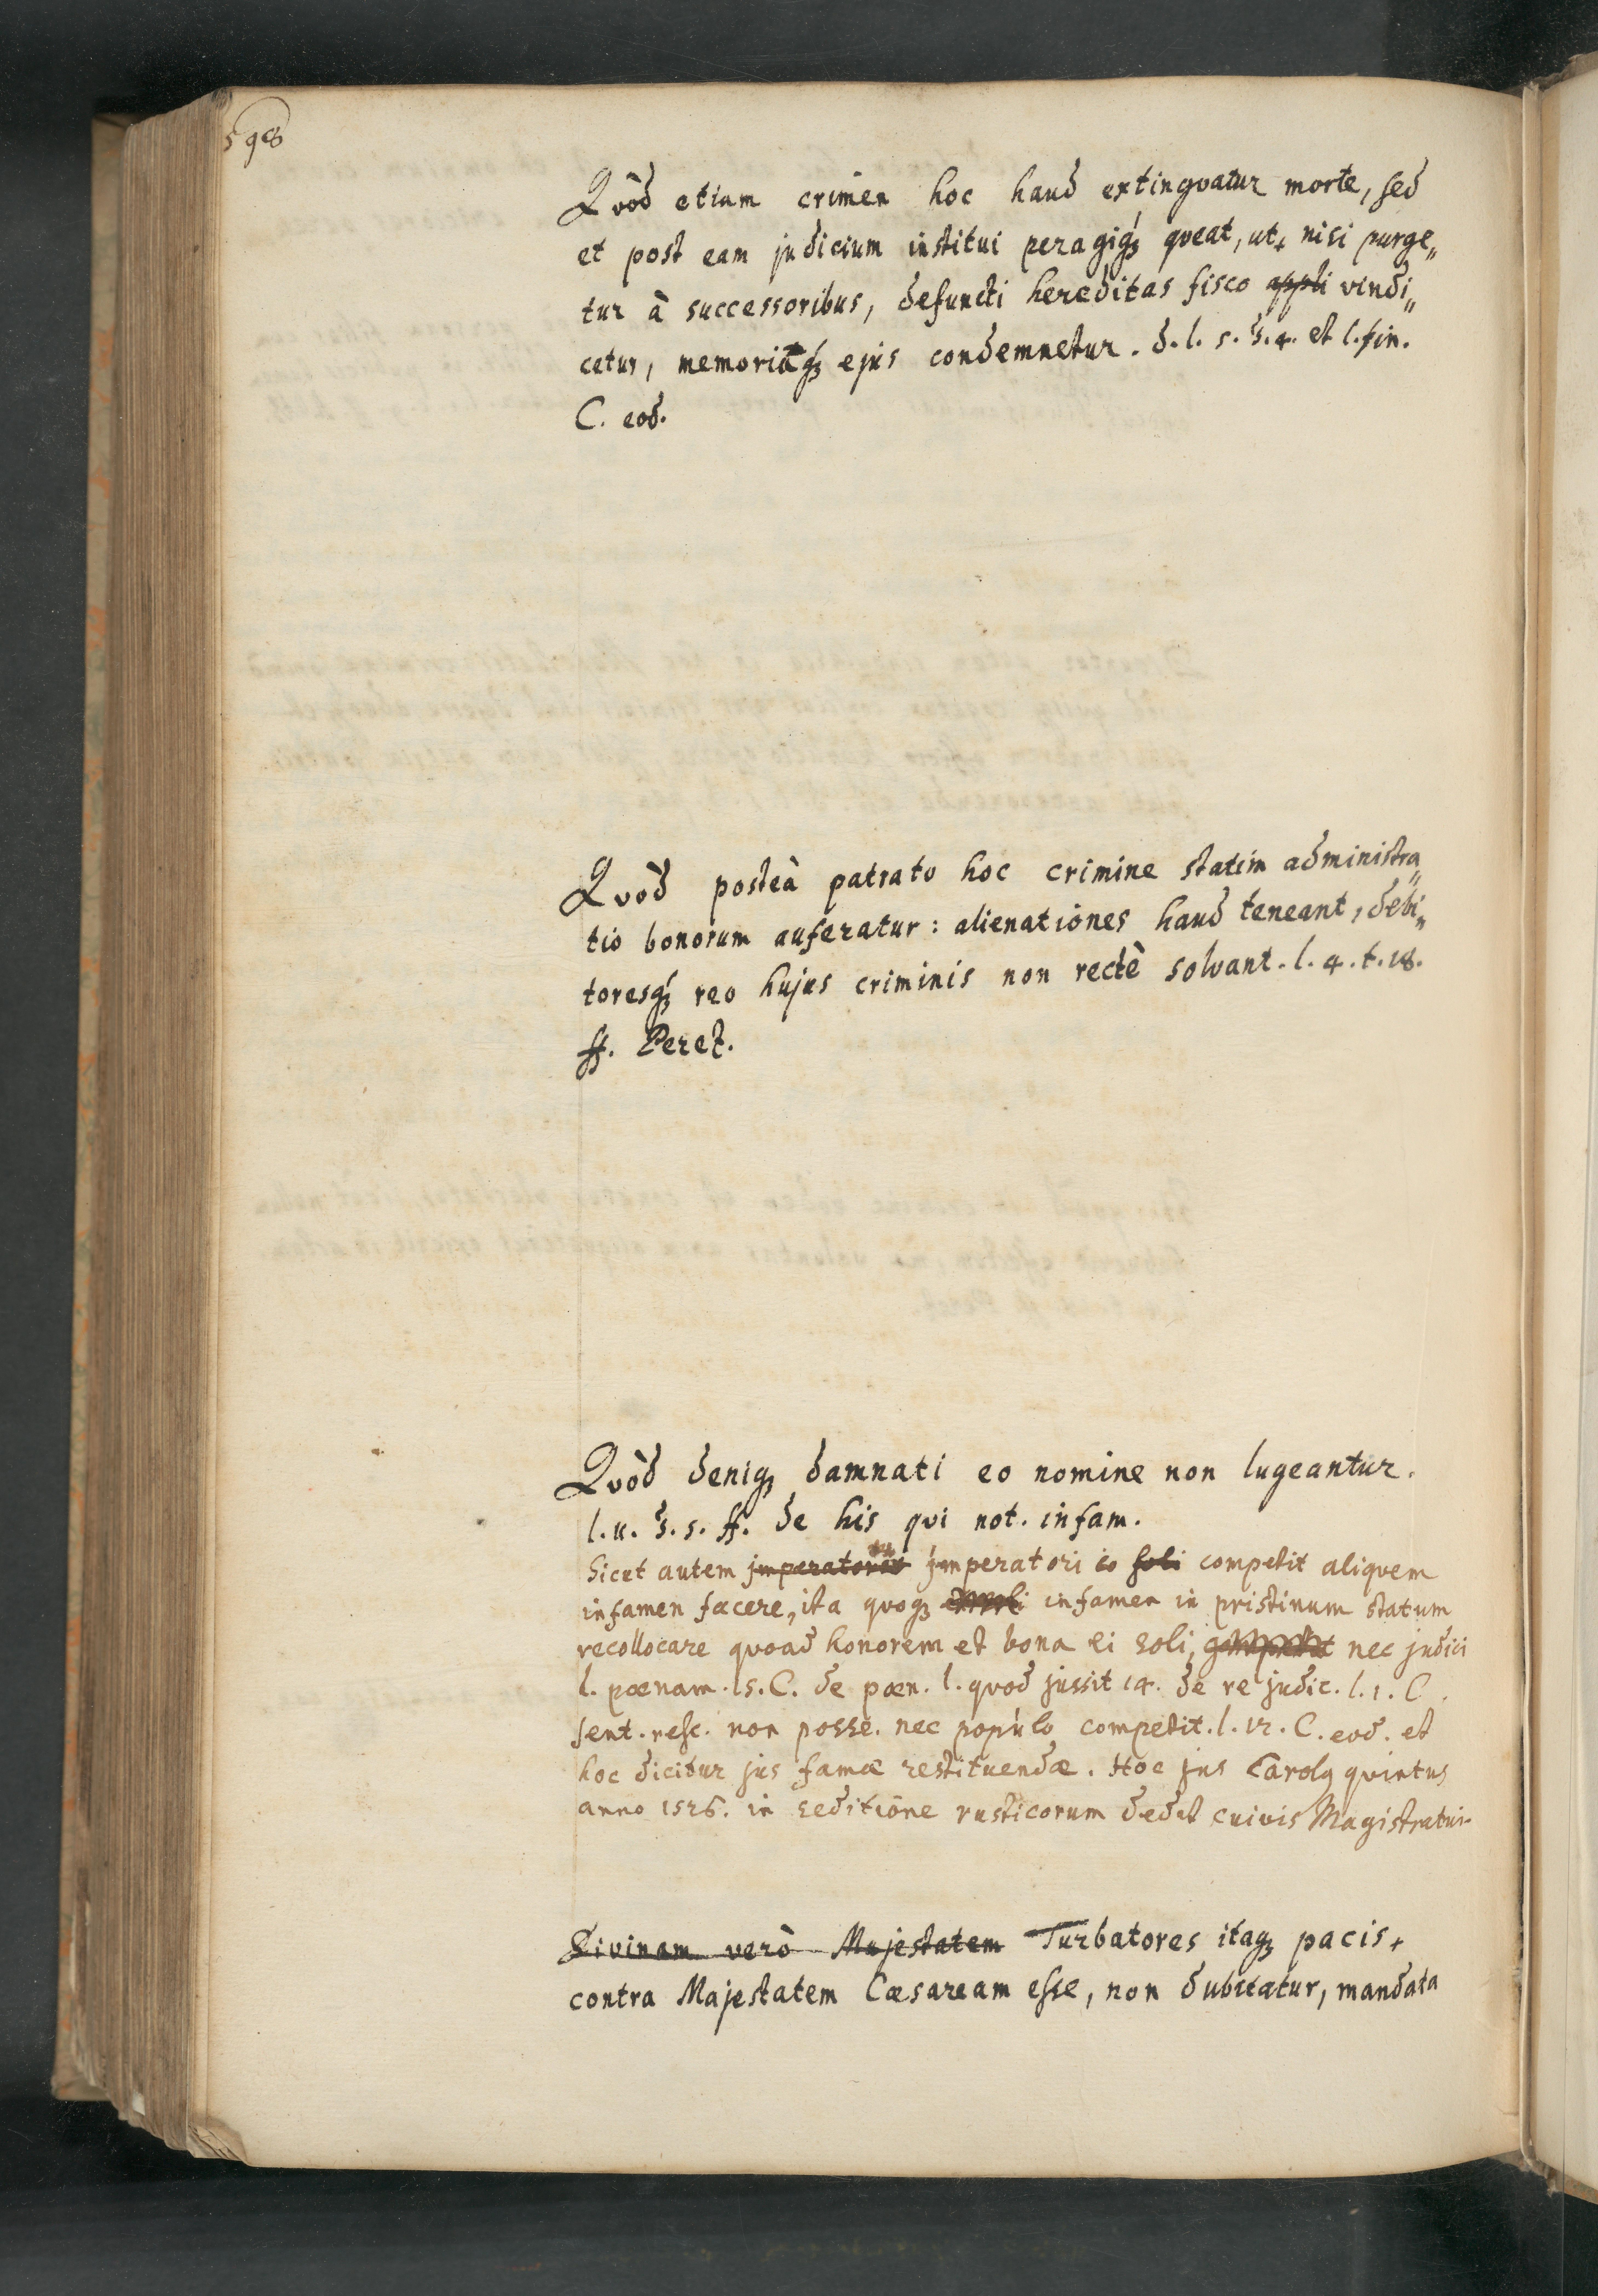 598
Qvòd etiam crimen hoc haud extingvatur morte, sed
et post eam judicium institui peragiq́ꝫ qveat, ut, nisi purge„
tur à successoribus, defuncti hereditas fisco appli vindi„
cetur, memoriaq́ꝫ ejus condemnetur. d. l. 5. §. 4. et l. fin.
C. eod.
Qvòd posteà patrato hoc crimine statim administra„
tio bonorum auferatur: alienationes haud teneant, debi„
toresq́ꝫ reo hujus criminis non rectè solvant. l. 4. t. 18.
ff. Peret.
Qvòd deniqꝫ damnati eo nomine non lugeantur.
l. 11. §. 5. ff. de his qvi not. infam.
Sicut autem jmperatori io soli competit aliquem
infamen facere, ita quoqꝫ infamen in pristinum statum
recollocare quoad honorem et bona ei soli, nec judici
l. pœnam. 15. C. de pœn. l. quod jussit 14. de re judic. l. 1. C.
sent. resc. non posse. nec populo competit. l. 12. C. eod. et
hoc dicitur jus famæ restituendæ. Hoc jus Carolꝫ quintus
anno 1526. in seditione rusticorum dedit cuivis Magistratui.
Divinam verò Majestatem Turbatores itaqꝫ pacis,
contra Majestatem Cæsaream esse, non dubitatur, mandata